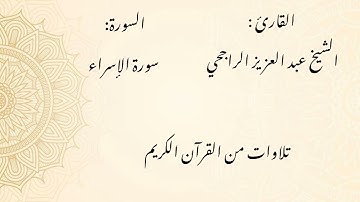 القارئ : السورة:
الشيخ عبد العزيز الراجحي سورة الإسراء
تلاوات من القرآن الكريم